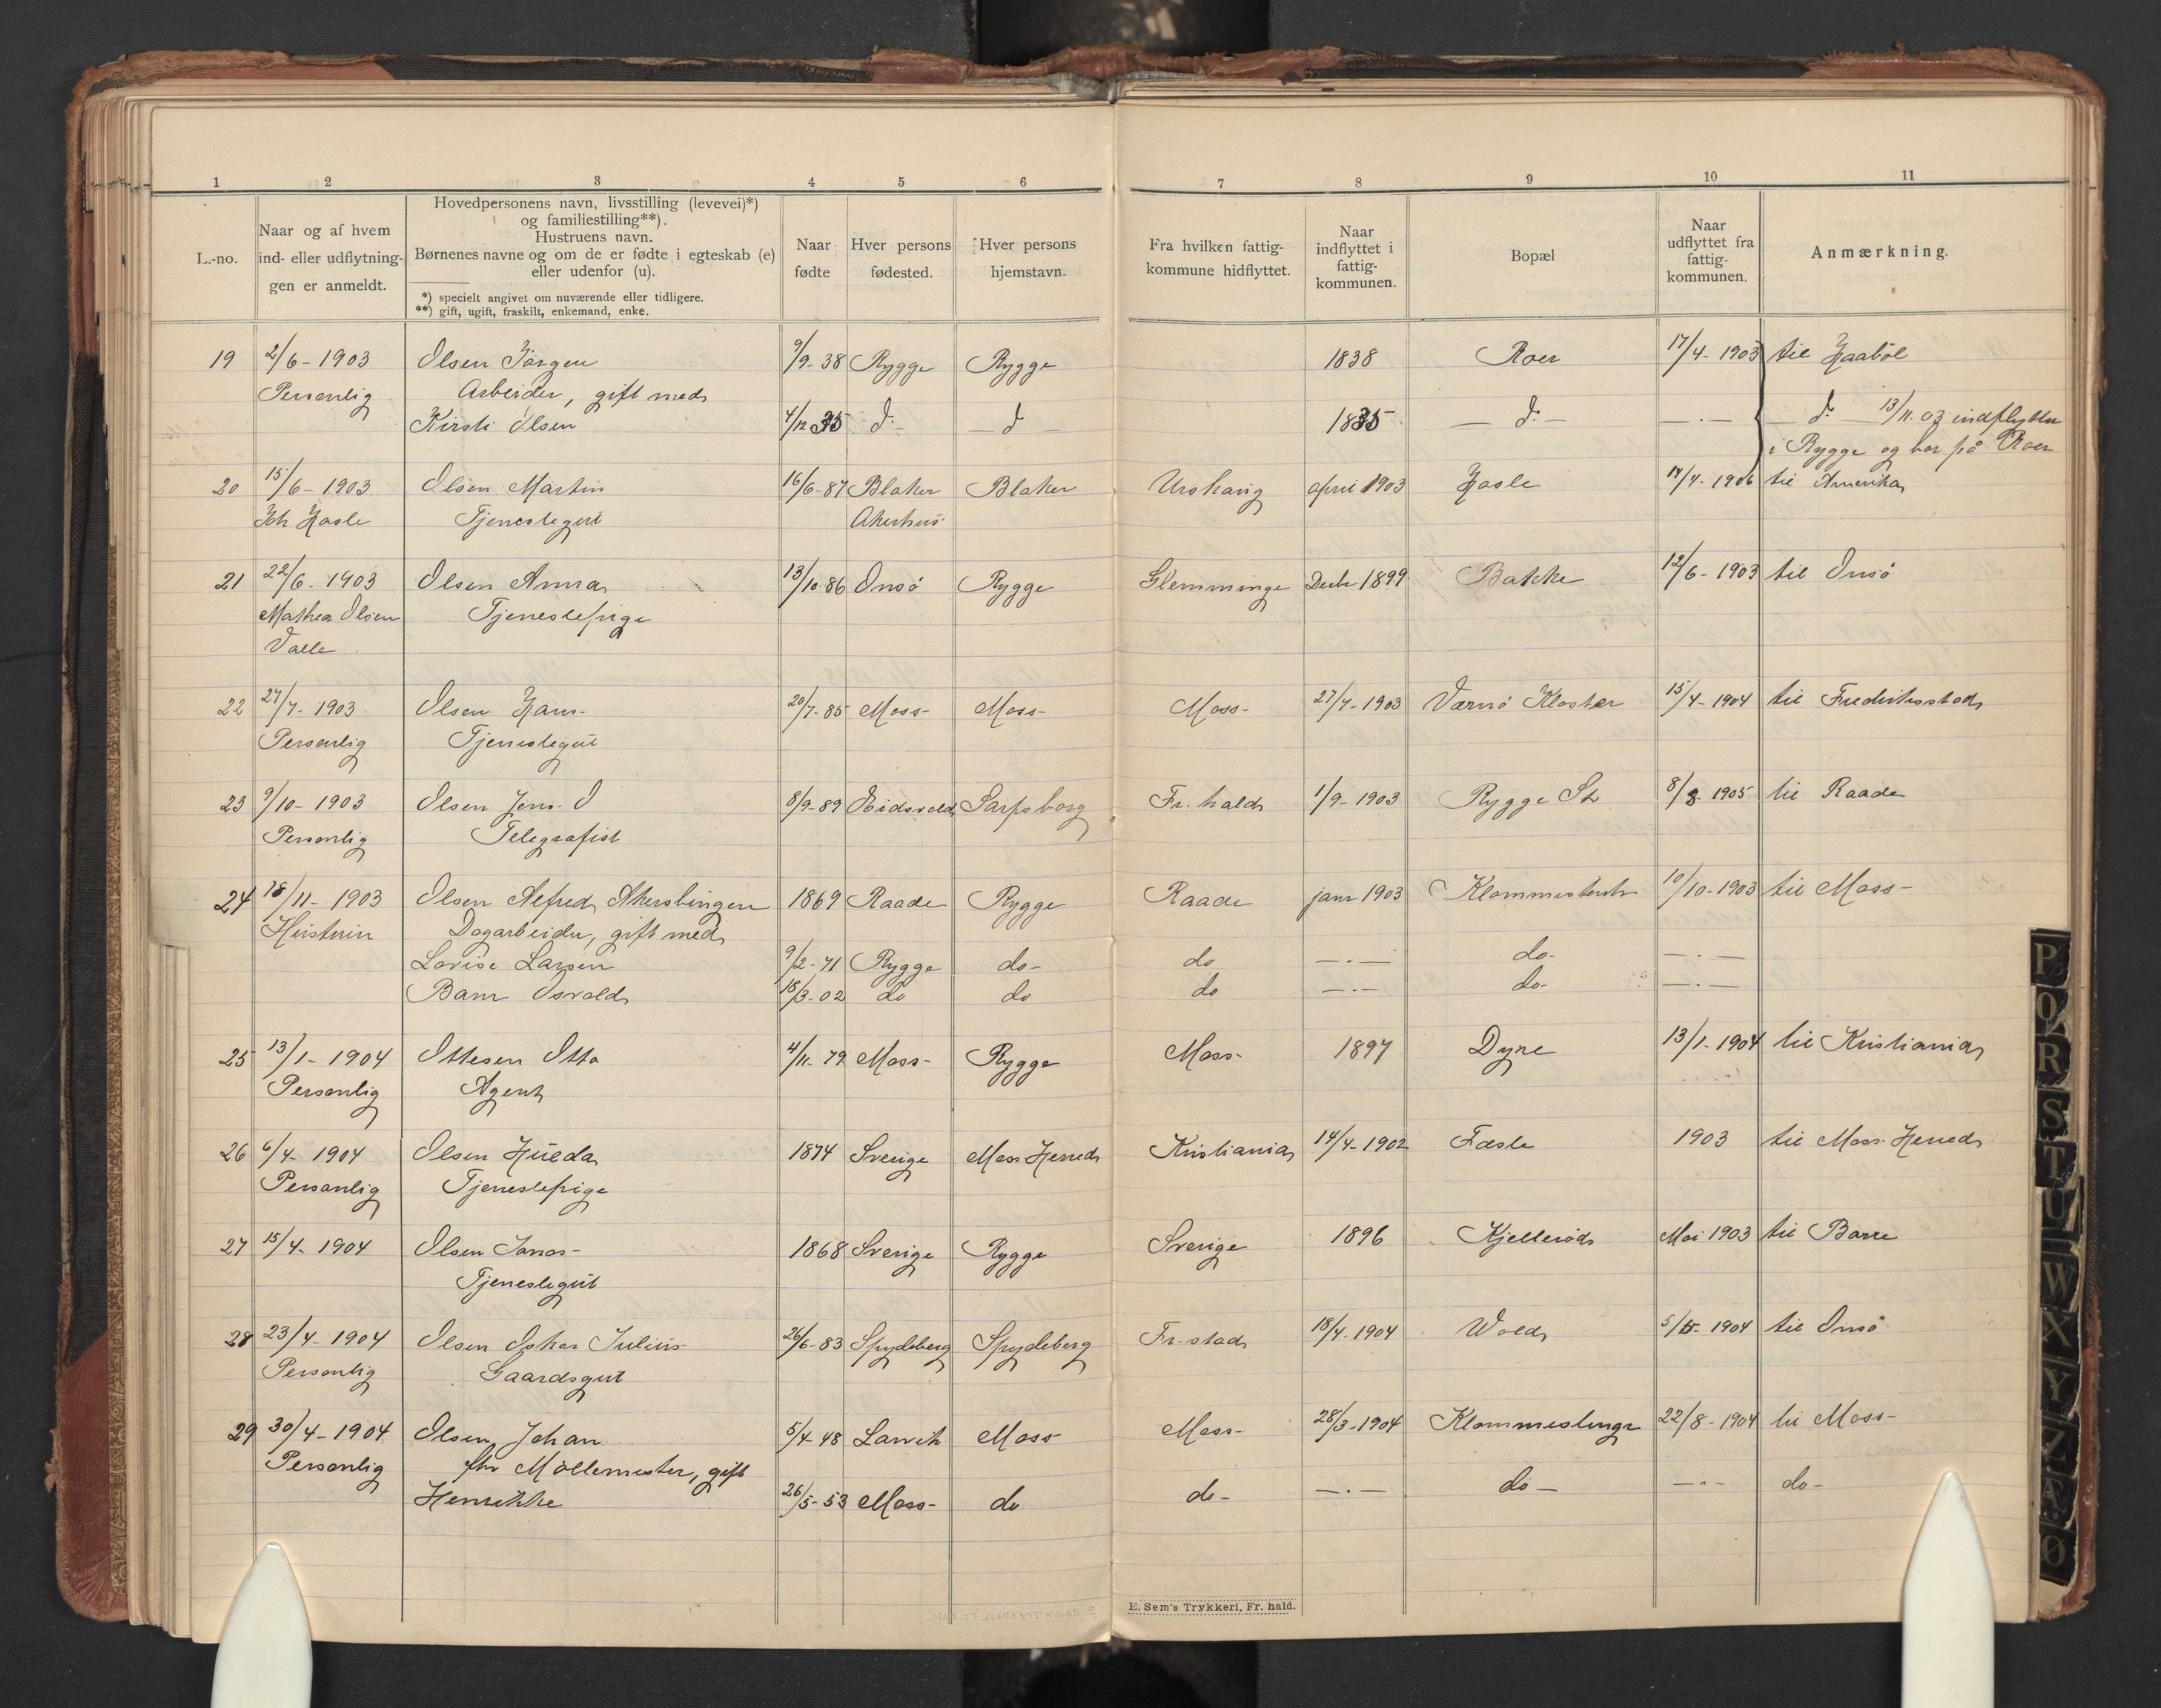 1 2 3 4 5 6 7 8 9 10 11
L.-no.
Naar og af hvem
ind- eller udflytnin-
gen er anmeldt.
Hovedpersonens navn, livsstilling (levevei)*)
og familiestilling**).
Hustruens navn.
Børnenes navne og om de er fødte i egteskab (e)
eller udenfor (u).
*) specielt angivet om nuværende eller tidligere.
**) gift, ugift, fraskilt, enkemand, enke.
Naar
fødte
Hver persons
fødested.
Hver persons
hjemstavn.
Fra hvilken fattig-
kommune hidflyttet.
Naar
indflyttet i
fattig-
kommunen.
Bopæl
Naar
udflyttet fra
fattig-
kommunen.
Anmærkning.
19 2/6-1903 Olsen Jørgen 9/9-38 Rygge Rygge 1838 Roer 17/4-1903 til Haabøl
Personlig Arbeider, gift med
Kirsti Olsen 4/12 35 do - do - 1835 - do - - . - - do - 13/11.03 indflyttet
i Rygge og bor på Roer
20 15/6-1903 Olsen Martin 16/6-87 Blaker Blaker Urskaug april 1903 Hasle 17/4-1906 til Amerika
Joh Hasle Tjenestegut Akerhus
21 22/6-1903 Olsen Anna 13/10-86 Onsö Rygge Glemminge Decbr 1899 Bakke 12/6-1903 til Onsö
Mathea Olsen Tjenestepige
Valle
22 27/7-1903 Olsen Hans- 20/7-85 Moss- Moss- Moss- 27/7-1903 Værnö Kloster 15/4-1904 til Fredriksstad
Personlig Tjenestegut
23 9/10-1903 Olsen Jens O 8/9-89 Eidsvold Sarpsborg Fr. hald 1/9-1903 Rygge St 8/8-1905 til Raade
Personlig Telegrafist
24 18/11-1903 Olsen Alfred Akersbingen 1869 Raade Rygge Raade janr 1903 10/10-1903 til Moss-
Hustruin Dagarbeider, gift med
Lovise Larsen 9/2-71 Rygge do- do - . - do- - . -
Barn Osvald 18/3-02 do do do - . - do- - . -
25 13/1-1904 Ottesen Otto 4/11-79 Moss- Rygge Moss- 1897 Dyre 13/1-1904 til Kristiania
Personlig Agent
26 6/4-1904 Olsen Hulda 1874 Sverige Moss Herred Kristiania 14/4-1902 Fæsle 1903 til Moss Herred
Personlig Tjenestepige
27 15/4-1904 Olsen Jonas- 1868 Sverige Rygge Sverige 1896 Kjelleröd Mai 1903 til Borre
Tjenestegut
28 23/4-1904 Olsen Oskar Julius- 26/6-83 Spydeberg Spydeberg Fr. stad 18/4-1904 Wold 5/5-1904 til Onsö
Personlig Gaardsgut
29 30/4-1904 Olsen Johan 5/4-48 Larvik Moss Moss- 28/3-1904 22/8-1904 til Moss-
Personlig fhv Möllemester, gift
Henrikke 26/5-53 Moss- do do- - . - do - - . - do-
E. Sem's Trykkeri, Fr. hald.
P
Q
R
S
T
U
W
X
Y
Z
Æ
Ø